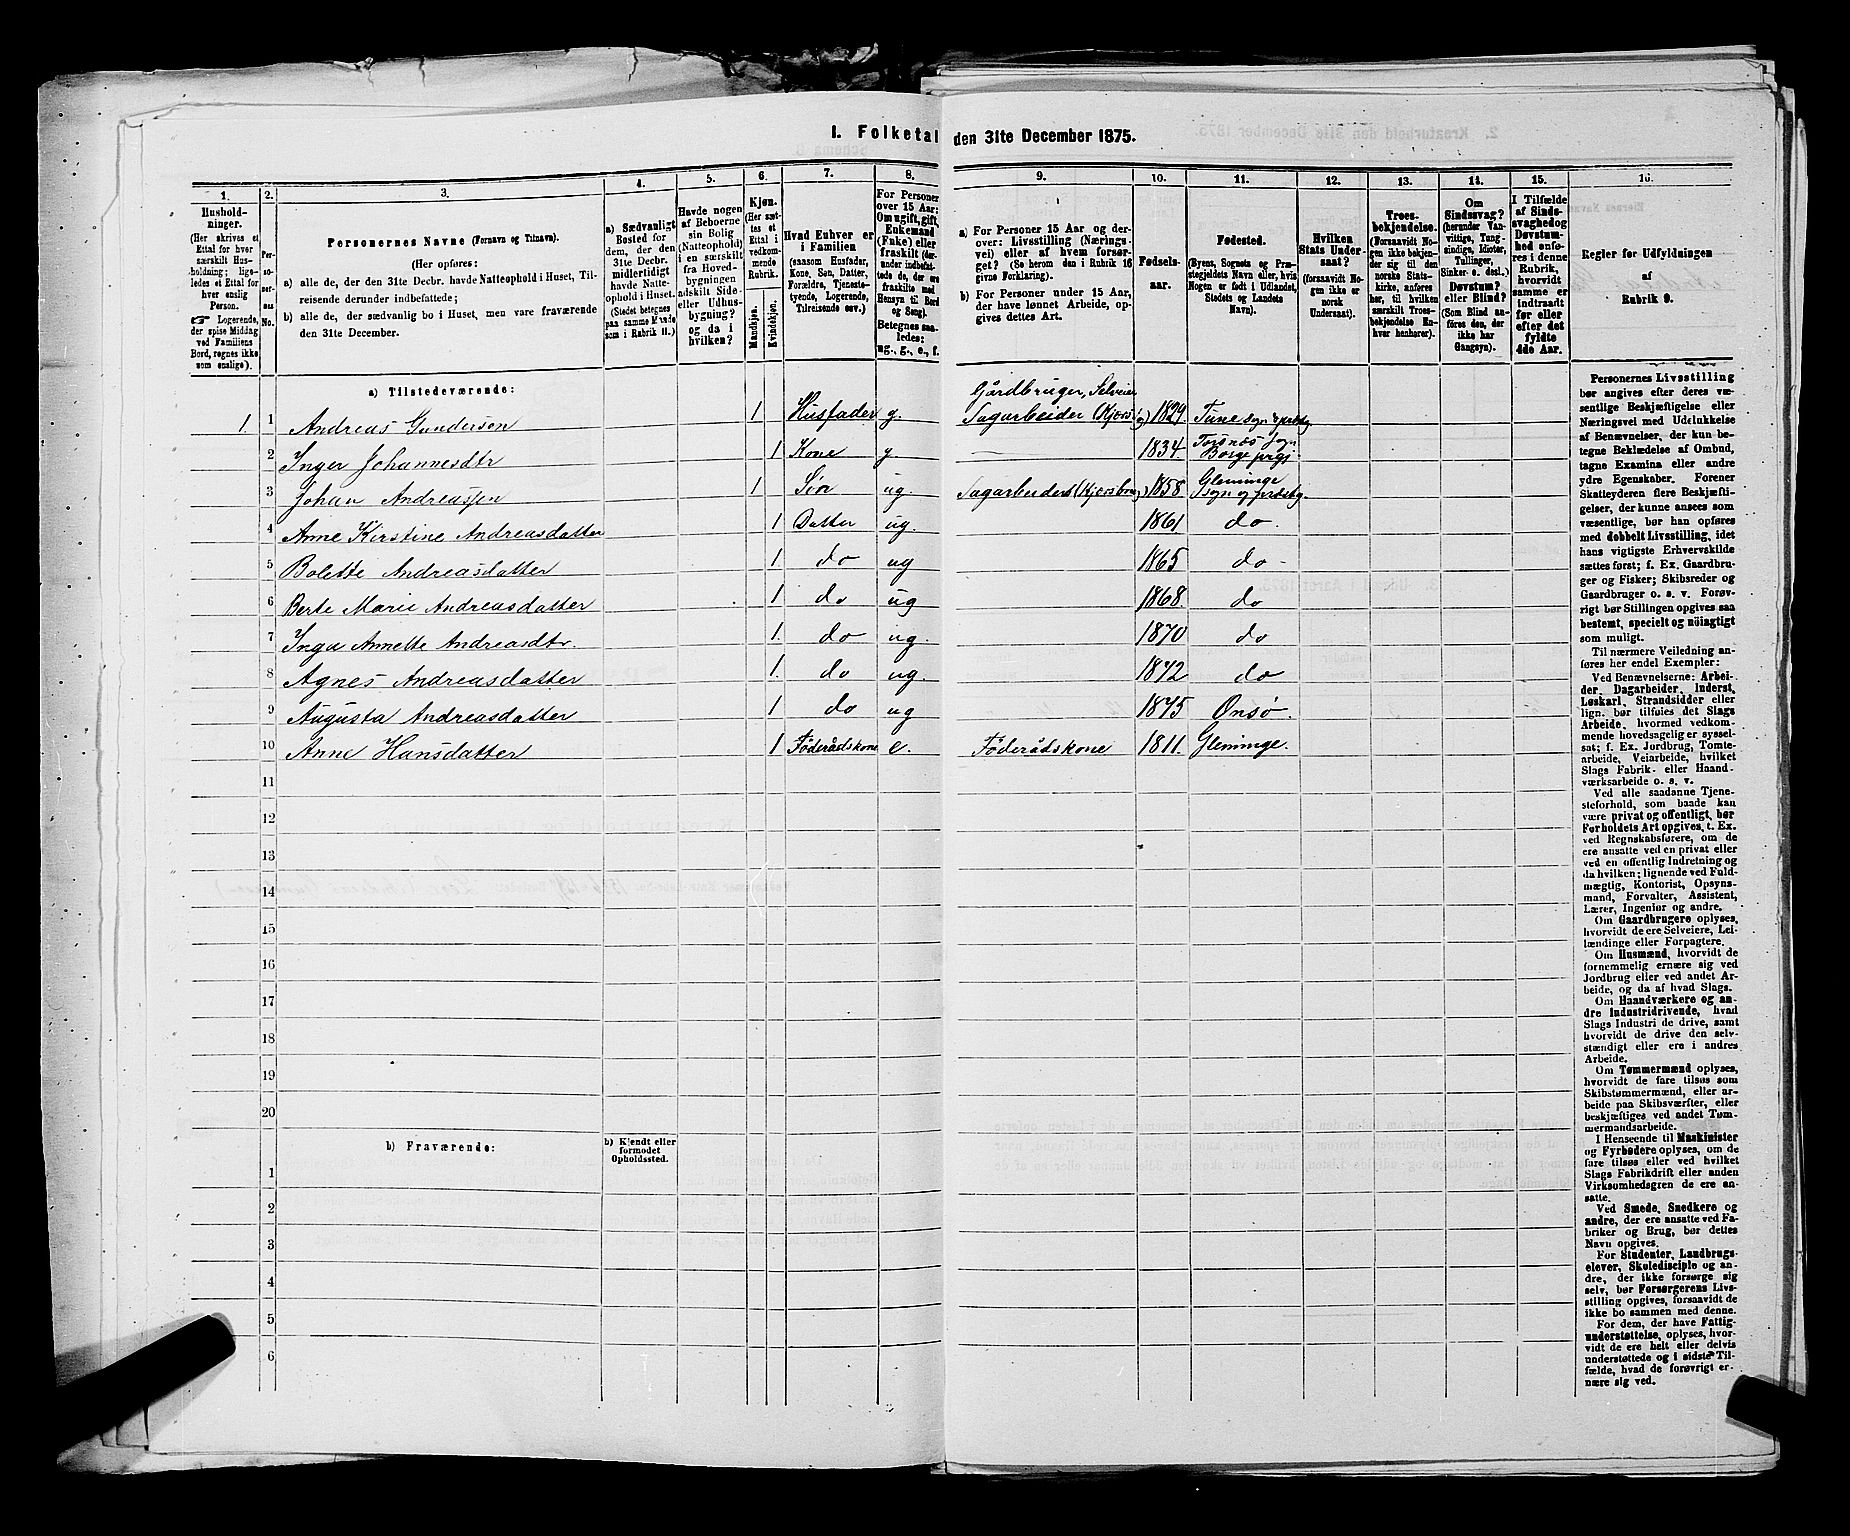 I. Folketal den 31te December 1875.
1.
2.
3.
4.
5.
6.
7.
8.
9.
10.
11.
12.
13.
14.
15.
16.
Hushold-
ninger.
(Her skrives et
Ettal for hver
særskilt Hus-
holdning; lige-
ledes et Ettal
for hver enslig
Person.
☞ Logerende,
der spise Middag
ved Familiens
Bord, regnes ikke
som enslige).
Per-
so-
ner-
nes
No.
Personernes Navne (Fornavn og Tilnavn).
(Her opføres:
a) alle de, der den 31te Decbr. havde Natteophold i Huset, Til-
reisende derunder indbefattede;
b) alle de, der sædvanlig bo i Huset, men vare fraværende
den 31te December.
a) Sædvanligt
Bosted for
dem, der den
31te Decbr.
midlertidigt
havde Natte-
ophold i Huset.
(Stedet betegnes
paa samme Maade
som i Rubrik 11.)
Havde nogen
af Beboerne
sin Bolig
(Natteophold)
i en særskilt
fra Hoved-
bygningen
adskilt Side-
eller Udhus-
bygning?
og da i
hvilken?
Kjøn.
(Her sæt-
tes et
Ettal i
vedkom-
mende
Rubrik.
Mandkjøn.
Kvindekjøn.
Hvad Enhver er
i Familien
(saasom Husfader,
Kone, Søn, Datter,
Forældre, Tjeneste-
tyende, Logerende,
Tilreisende osv.)
For Personer
over 15 Aar:
Om ugift, gift,
Enkemand
(Enke) eller
fraskilt (der-
under indbefat-
tede de, der ere
fraskilte med
Hensyn til Bord
og Seng).
Betegnes saa-
ledes:
ug., g., e., f.
a) For Personer 15 Aar og der-
over: Livsstilling (Nærings-
vei) eller af hvem forsør-
get? (Se herom den i Rubrik 16
givne Forklaring).
b) For Personer under 15 Aar,
der have lønnet Arbeide, op-
gives dettes Art.
Fødsels-
aar.
Fødested.
(Byens, Sognets og Præ-
stegjeldets Navn eller, hvis
Nogen er født i Udlandet,
Stedets og Landets
Navn).
Hvilken
Stats Under-
saat?
(forsaavidt No-
gen ikke er
norsk
Undersaat).
Troes-
bekjendelse.
(Forsaavidt No-
gen ikke bekjen-
der sig til den
norske Stats-
kirke, anføres
her, til hvilken
særskilt Troes-
bekjendelse En-
hver henhører).
Om
Sindssvag?
(herunder Van-
vittige, Tung-
sindige, Idioter,
Tullinger,
Sinker o. desl.)
Døvstum?
eller Blind?
(Som Blind an-
føres den, der
ikke har
Gangsyn).
I Tilfælde
af Sinds-
svaghed og
Døvstum-
hed anfø-
res i denne
Rubrik,
hvorvidt
samme er
indtraadt
før eller
efter det
fyldte
4de Aar.
Regler for Udfyldningen
af
Rubrik 9.
a) Tilstedeværende:
1. 1 Andreas Gundersen 1 Husfader g. Gårdbruger, Selveier Sagarbeider 1829. Tune
2 Inger Johannesdtr 1 Kone g. 1834. Torsnæs Sogn Borge prgj
3 Johan Andreassen 1 Søn ug. 1858 Glemminge sogn og
4 Anne Kirstine Andreasdatter 1 Datter ug. 1861 do.
5 Bolette Andreasdatter 1. do ug 1865 do
6 Berte Marie Andreasdatter 1. do ug 1868. do
7 Inga Annette Andreasdtr. 1. do ug. 1870 do
8 Agnes Andreasdatter 1. do ug. 1872 do
9 Augusta Andreasdatter 1 do ug 1875 Onsø.
10 Anne Hansdatter 1 Føderådskone e. Føderådskone 1811. Gleminge.
11
12
13
14
15
16
17
18
19
20
b) Fraværende:
b) Kjendt eller
formodet
Opholdssted.
1
2
3
4
5
6
Personernes Livsstilling
bør angives efter deres væ-
sentlige Beskjæftigelse eller
Næringsvei med Udelukkelse
af Benævnelser, der kun be-
tegne Beklædelse af Ombud,
tagne Examina eller andre
ydre Egenskaber. Forener
Skatteyderen flere Beskjæfti-
gelser, der kunne ansees som
væsentlige, bør han opføres
med dobbelt Livsstilling, idet
hans vigtigste Erhvervskilde
sættes først; f. Ex. Gaardbru-
ger og Fisker; Skibsreder og
Gaardbruger o. s. v. Forøv-
rigt bør Stillingen opgives saa
bestemt, specielt og nöiagtigt
som muligt.
Til nærmere Veiledning an-
føres her endel Exempler:
Ved Benævnelserne: Arbei-
der, Dagarbeider, Inderst,
Løskarl, Strandsidder eller
lign. bør tilføies det Slags
Arbeide, hvormed vedkom-
mende hovedsagelig er syssel-
sat; f. Ex. Jordbrug, Tomte-
arbeide, Veiarbeide, hvilket
Slags Fabrik- eller Haand-
værksarbeide o. s. v.
Ved alle saadanne Tjene-
steforhold, som baade kan
være privat og offentligt, bør
Forholdets Art opgives, t. Ex.
ved Regnskabsførere, om de
ere ansatte ved en privat eller
ved en offentlig Indretning og
da hvilken; lignende ved Fuld-
mægtig, Kontorist, Opsyns-
mand, Forvalter, Assistent,
Lærer, Ingeniør og andre.
Om Gaardbrugere oplyses,
hvorvidt de ere Selveiere, Lei-
lændinge eller Forpagtere.
Om Husmænd, hvorvidt de
fornemmelig ernære sig ved
Jordbrug eller ved andet Ar-
beide, og da af hvad Slags.
Om Haandværkere og an-
dre Industridrivende, hvad
Slags Industri de drive, samt
hvorvidt de drive den selv-
stændigt eller ere i andres
Arbeide.
Om Tømmermænd oplyses,
hvorvidt de fare tilsøs som
Skibstømmermænd, eller ar-
beide paa Skibsværfter, eller
beskjæftiges ved andet Tøm-
mermandsarbeide.
I Henseende til Maskinister
og Fyrbødere oplyses, om de
fare tilsøs eller ved hvilket
Slags Fabrikdrift eller anden
Virksomhedsgren de ere an-
satte.
Ved Smede, Snedkere og
andre, der ere ansatte ved Fa-
briker og Brug, bør dettes
Navn opgives.
For Studenter, Landbrugs-
elever, Skoledisciple og an-
dre, der ikke forsørge sig
selv, bør Forsørgerens Livs-
stilling opgives, forsaavidt de
ikke bo sammen med denne.
For dem, der have Fattig-
understøttelse, oplyses, hvor-
vidt de ere helt eller delvis
understøttede og i sidste Til-
fælde, hvad de forøvrigt er-
nære sig ved.